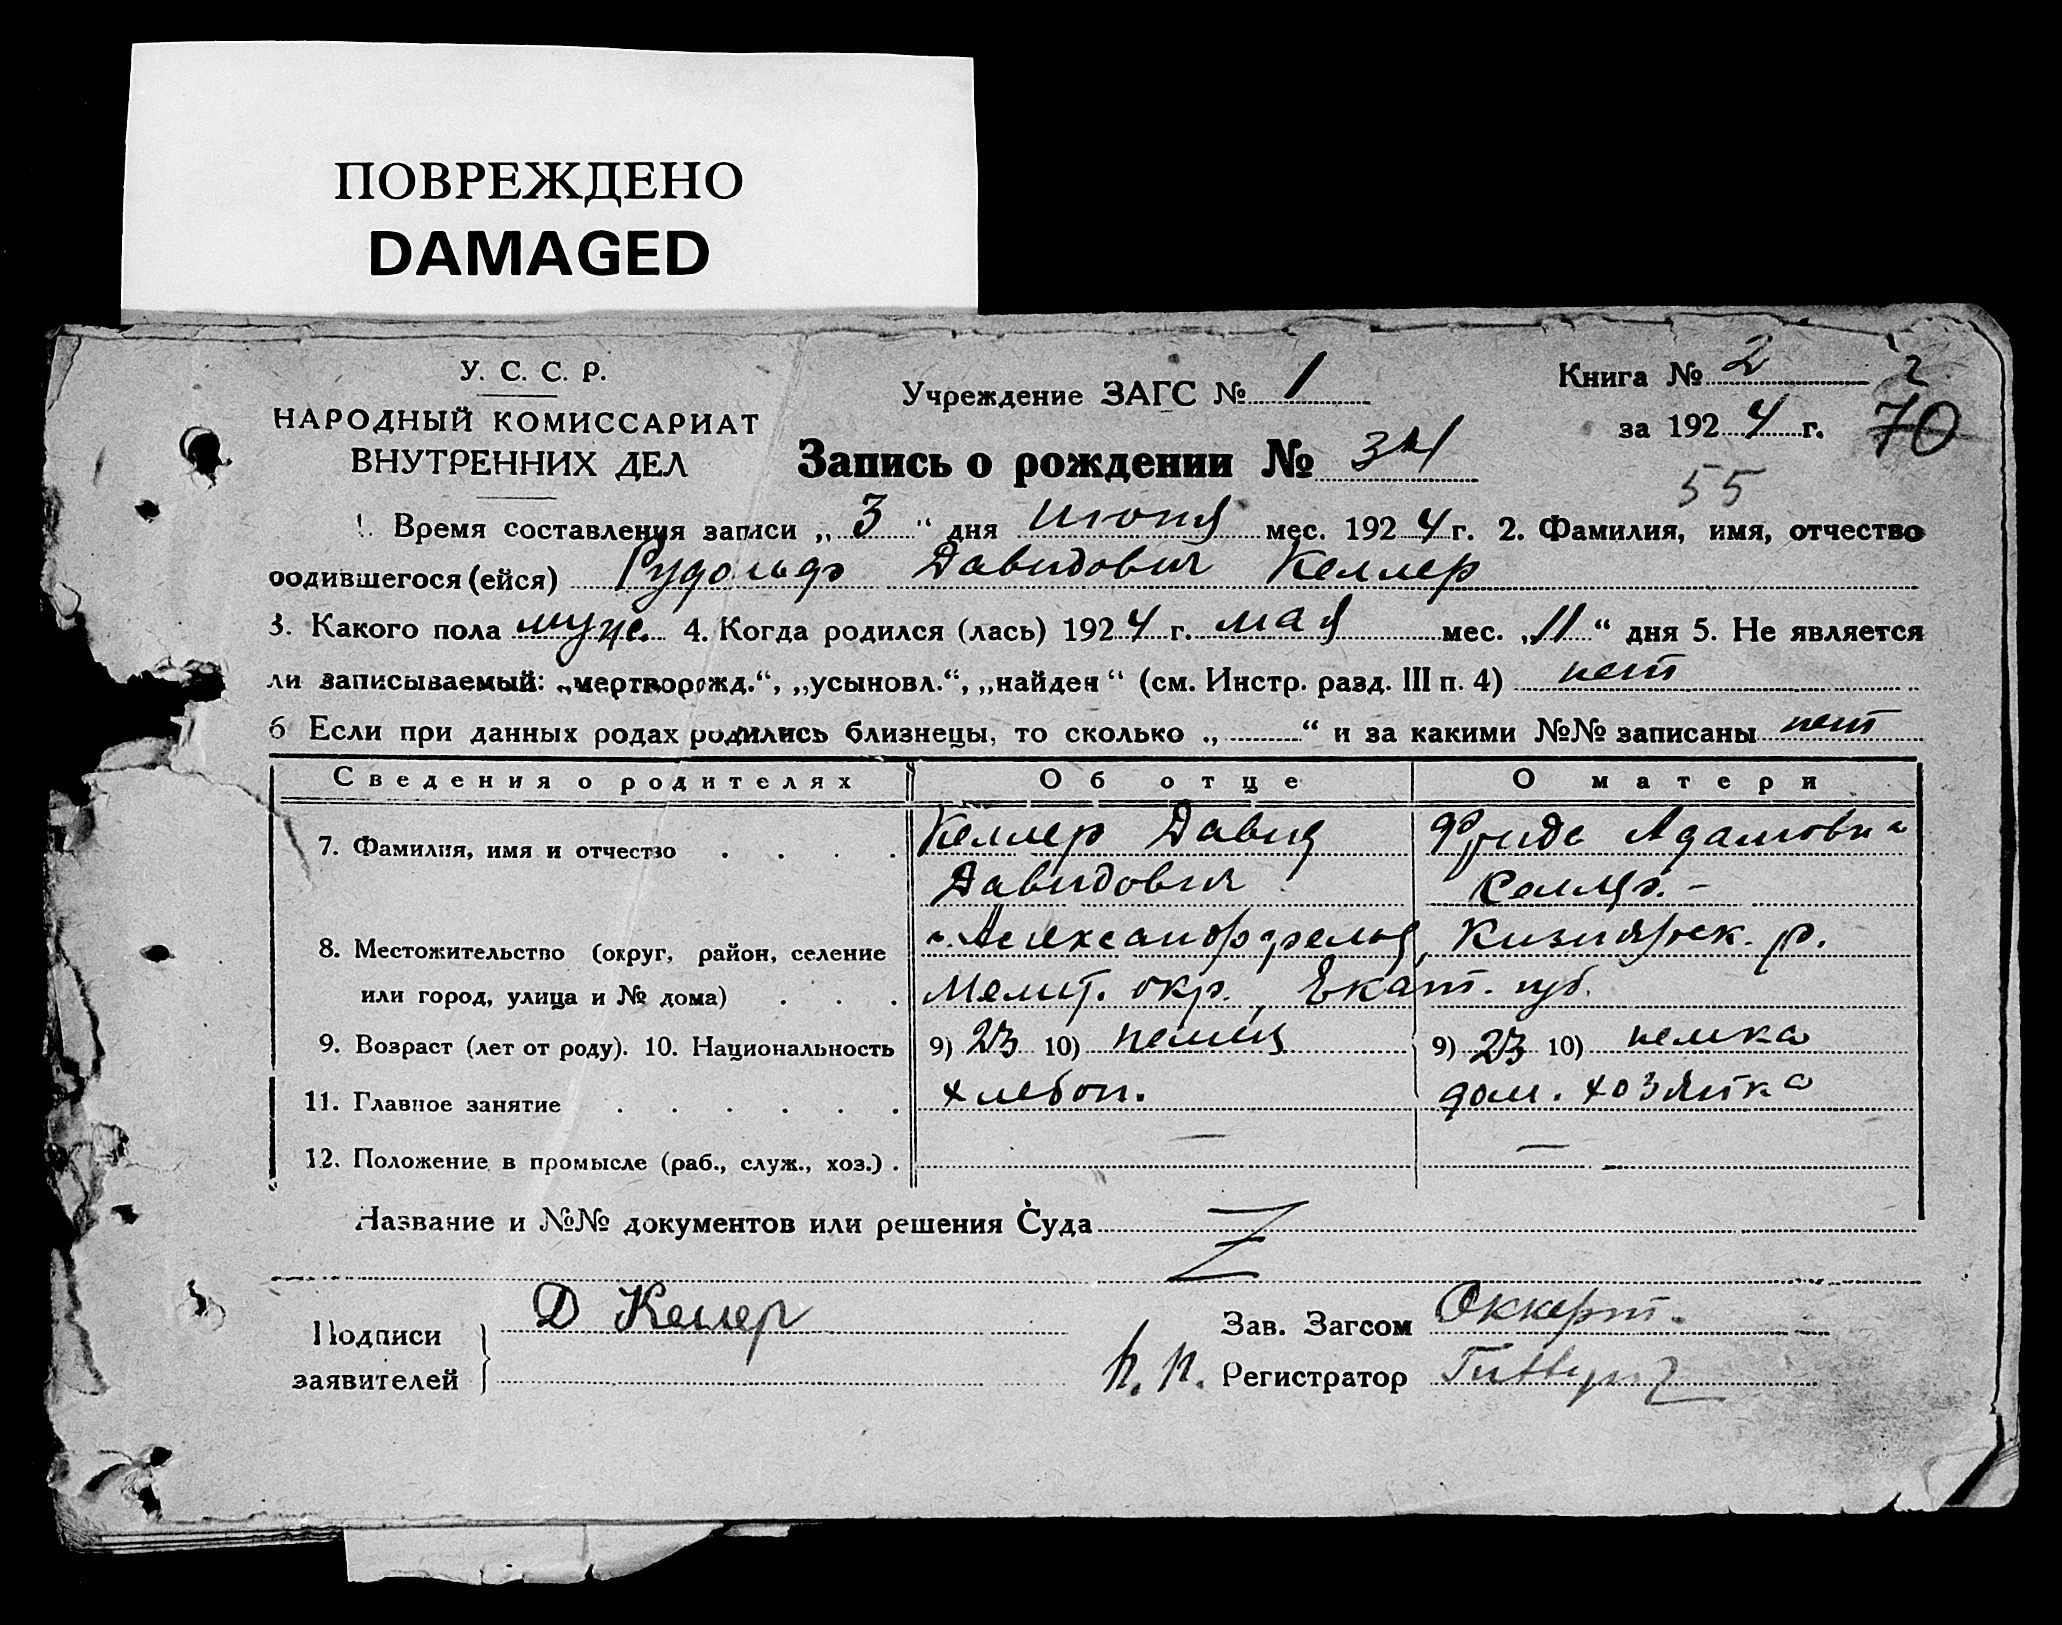 ПОВРЕЖДЕНО
DAMAGED
У. С. С. Р.
НАРОДНЫЙ КОМИССАРИАТ
ВНУТРЕННИХ ДЕЛ
Учреждение ЗАГС № 1
Книга № 2 2
за 1924 г. 70
Запись о рождении № 34
55
1. Время составления записи „3“ дня июня мес. 1924 г. 2. Фамилия, имя, отчество
родившегося (ейся) Рудольф Давидович Келлер
3. Какого пола муж. 4. Когда родился (лась) 1924 г. мая мес. „11“ дня 5. Не является
ли записываемый: „мертворожд.“, „усыновл.“, „найден“ (см. Инстр. разд. III п. 4) нет
6 Если при данных родах родились близнецы, то сколько „ “ и за какими №№ записаны нет
Сведения о родителях Об отце О матери
7. Фамилия, имя и отчество Келлер Давид Фрида Адамовна
Давидович Келлер. –
8. Местожительство (округ, район, селение с. Александрфельд, Кизиярск. р.
или город, улица и № дома) Мелит. окр. Екат. губ.
9. Возраст (лет от роду). 10. Национальность 9) 23 10) немец 9) 23 10) немка
11. Главное занятие хлебоп. дом. хозяйка
12. Положение в промысле (раб., служ., хоз.) . — —
Название и №№ документов или решения Суда Z
Подписи
заявителей
Д Келлер
Зав. Загсом Оккерт.
п. п. Регистратор